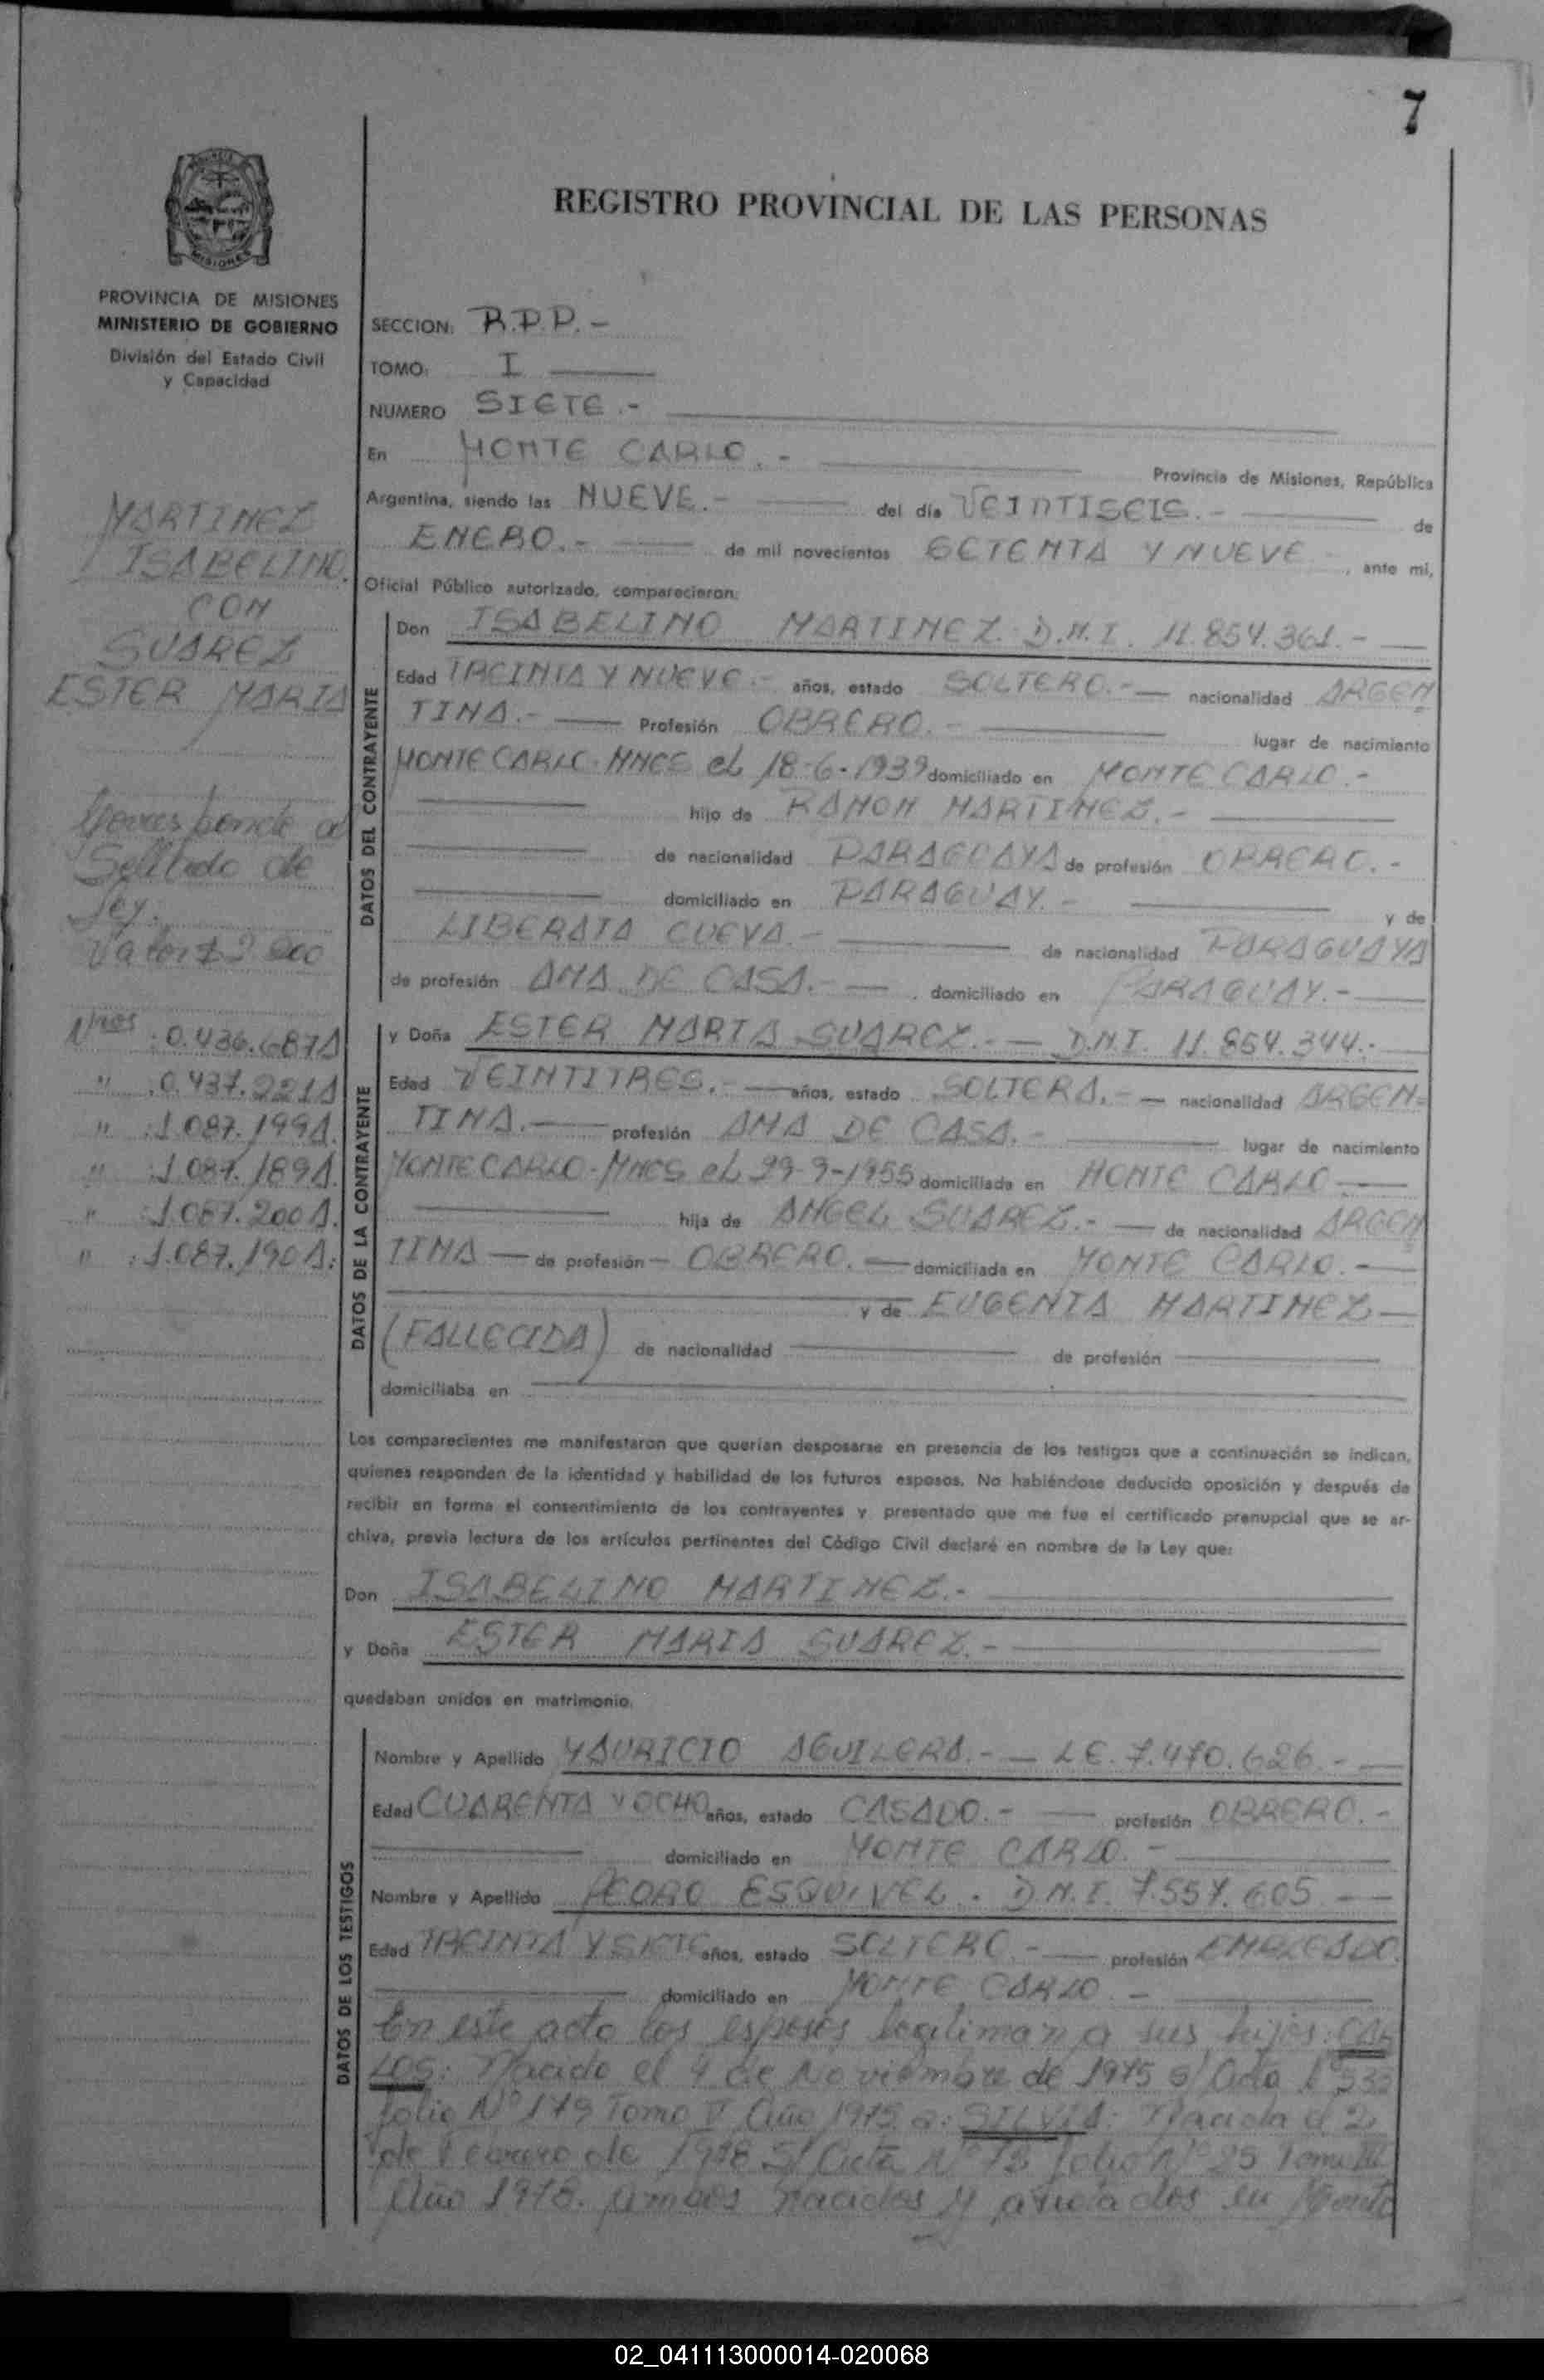 7
REGISTRO PROVINCIAL DE LAS PERSONAS
MISIONES
PROVINCIA DE MISIONES
MINISTERIO DE GOBIERNO
División del Estado Civil
y Capacidad
MARTINEZ
ISABELINO.
CON
SUAREZ
ESTER MARIA
Corresponde a
Sellado de
Ley.
Valor $
Nros :0.436.687A
" :0.437.221A
" :1.087.199A.
" :1.087.189A.
" :1.087.200A.
" :1.087.190A.
SECCION: R.P.P.-
TOMO: I
NUMERO SIETE.-
En MONTE CARLO.- Provincia de Misiones, República
Argentina, siendo las NUEVE.- del día VEINTISEIS.- de
ENERO.- de mil novecientos SETENTA Y NUEVE , ante mí,
Oficial Público autorizado, comparecieron:
DATOS DEL CONTRAYENTE
Don ISABELINO MARTINEZ. D.N.I. 11.854.361.-
Edad TREINTA Y NUEVE.- años, estado SOLTERO.- nacionalidad ARGEN
TINA.- Profesión OBRERO.- lugar de nacimiento
MONTE CARLO-MNES el 18-6-1939 domiciliado en MONTE CARLO.-
hijo de RAMON MARTINEZ.-
de nacionalidad PARAGUAYA de profesión OBRERO.-
domiciliado en PARAGUAY.- y de
LIBERATA CUEVA.- de nacionalidad PARAGUAYA
de profesión AMA DE CASA.- , domiciliado en PARAGUAY.-
DATOS DE LA CONTRAYENTE
y Doña ESTER MARIA SUAREZ.- D.N.I. 11.854.344.-
Edad VEINTITRES.- años, estado SOLTERA.- nacionalidad ARGEN-
TINA.- profesión AMA DE CASA.- lugar de nacimiento
MONTE CARLO-MNES el 29-9-1955 domiciliada en MONTE CARLO
hija de ANGEL SUAREZ.- de nacionalidad ARGEN
TINA de profesión OBRERO. domiciliada en MONTE CARLO.-
y de EUGENIA MARTINEZ
(FALLECIDA) de nacionalidad de profesión
domiciliaba en
Los comparecientes me manifestaron que querían desposarse en presencia de los testigos que a continuación se indican,
quienes responden de la identidad y habilidad de los futuros esposos. No habiéndose deducido oposición y después de
recibir en forma el consentimiento de los contrayentes y presentado que me fue el certificado prenupcial que se ar-
chiva, previa lectura de los artículos pertinentes del Código Civil declaré en nombre de la Ley que:
Don ISABELINO MARTINEZ.-
y Doña ESTER MARIA SUAREZ.-
quedaban unidos en matrimonio.
DATOS DE LOS TESTIGOS
Nombre y Apellido MAURICIO AGUILERA.- L.E. 7.470.626.-
Edad CUARENTA Y OCHO años, estado CASADO.- profesión OBRERO.-
domiciliado en MONTE CARLO.-
Nombre y Apellido PEDRO ESQUIVEL. D.N.I. 7.557.605
Edad TREINTA Y SIETE años, estado SOLTERO.- profesión EMPLEADO.
domiciliado en MONTE CARLO.-
En este acto los esposos legitiman a sus hijos: CAR
LOS: Nacido el 4 de Noviembre de 1975 s/ Acta
folio Nº 179 Tomo Año 1975 SILVIA: Nacida el 2
de Febrero de 1978 S/ Acta Nº folio Nº 25 Tomo
Año 1978. ambos nacidos y anotados en Monte
02_041113000014-020068